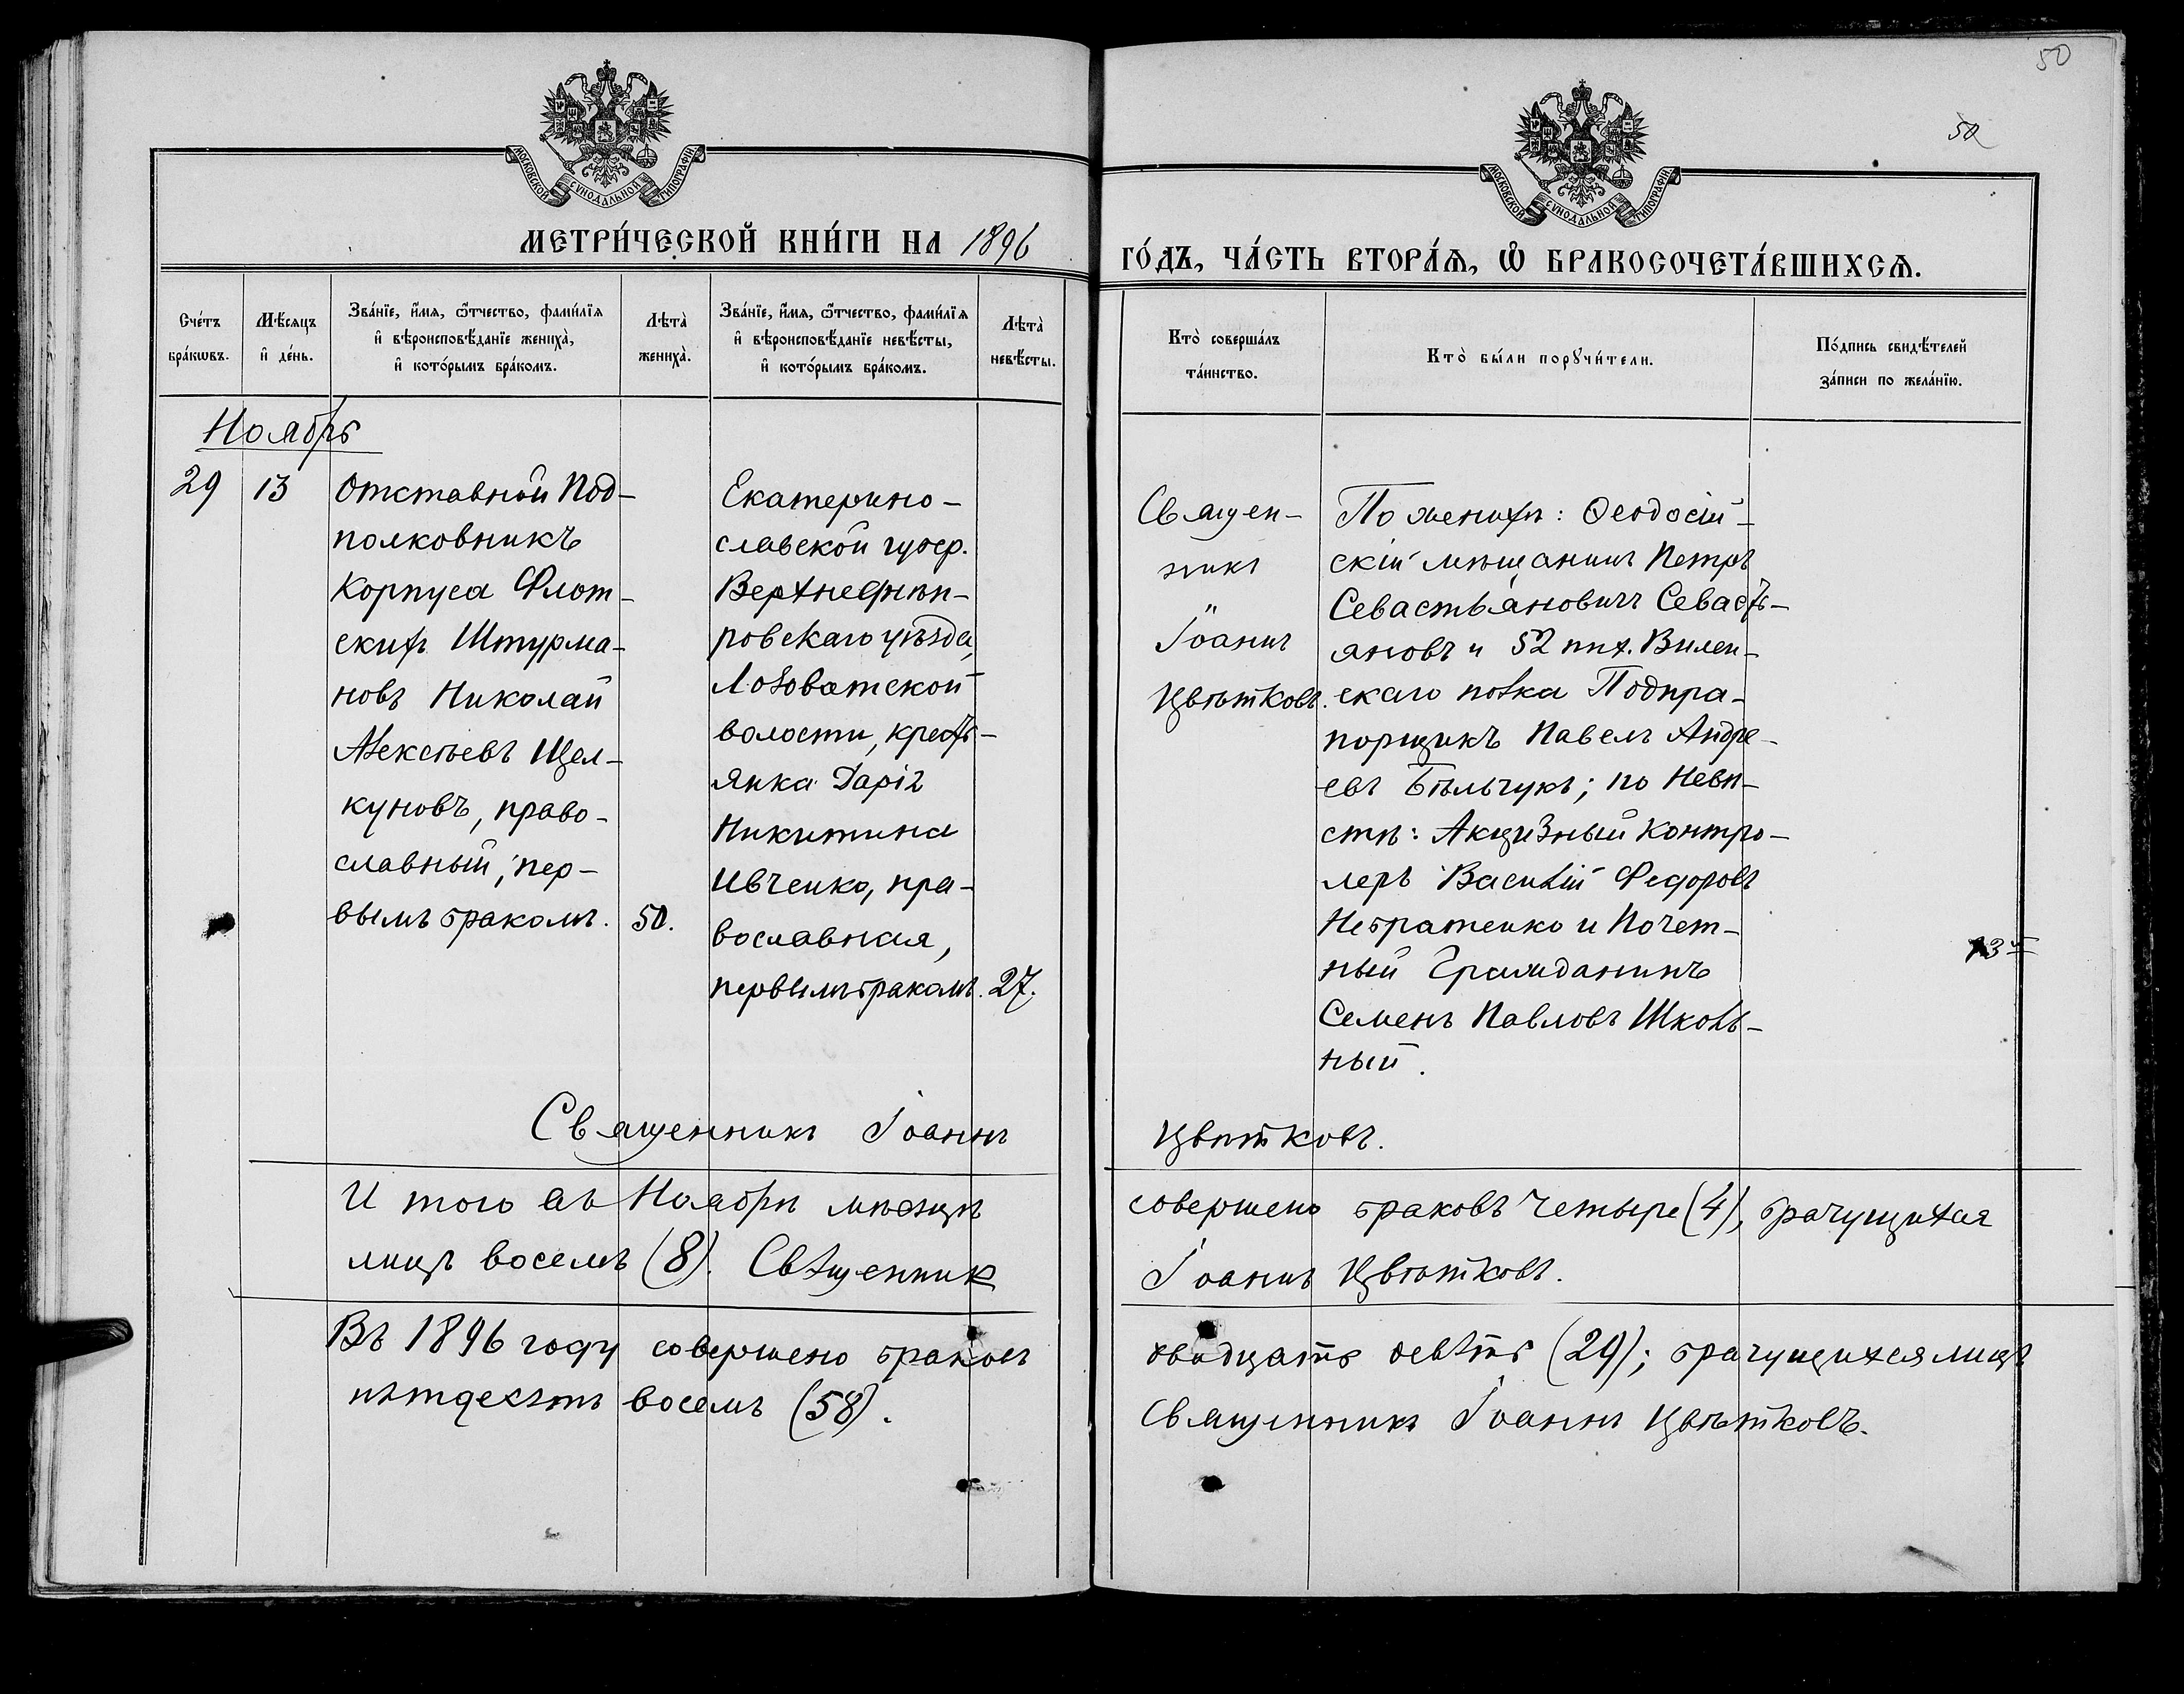 50
50
МОСКОВСКОЙ СѴНОДАЛЬНОЙ ТИПОГРАФІИ
МОСКОВСКОЙ СѴНОДАЛЬНОЙ ТИПОГРАФІИ
МЕТРИ́ЧЕСКОЙ КНИ́ГИ НА 1896
ГО́ДЪ, ЧА́СТЬ ВТОРА́Ѧ, Ѡ БРАКОСОЧЕТА́ВШИХСѦ.
Сче́тъ
бра́кѡвъ.
Мѣ́сяцъ
и҆ де́нь.
Зва́нїе, и҆́мя, ѻ҆́тчество, фами́лїя
и҆ вѣроисповѣ́данїе жениха̀,
и҆ кото́рымъ бра́комъ.
Лѣта̀
жениха̀.
Зва́нїе, и҆́мя, ѻ҆́тчество, фами́лїя
и҆ вѣроисповѣ́данїе невѣ́сты,
и҆ кото́рымъ бра́комъ.
Лѣта̀
невѣ́сты.
Кто̀ соверша́лъ
та́инство.
Кто̀ бы́ли порꙋчи́тели.
По́дпись свидѣ́телей
за́писи по жела́нїю.
Ноябрь
29
13
Отставной Под-
полковникъ
Корпуса Флот-
скихъ Штурма-
новъ Николай
Алексѣевъ Щел-
куновъ, право-
славный, пер-
вымъ бракомъ.
50.
Екатерино-
славской губер.
Верхнеднѣп-
ровскаго уѣзда,
Лозоватской
волости, кресть-
янка Дарія
Никитина
Ивченко, пра-
вославная,
первымъ бракомъ.
27.
Священ-
никъ
Іоаннъ
Цвѣтковъ.
По женихѣ: Ѳеодосій-
скій мѣщанинъ Петръ
Севастьяновичъ Севасть-
яновъ и 52 пѣх. Вилен-
скаго полка Подпра-
порщикъ Павелъ Андре-
евъ Бѣльчукъ; по Невѣ-
стѣ: Акцизный Контро-
леръ Василій Федоровъ
Небратенко и Почет-
ный Гражданинъ
Семенъ Павловъ Школь-
ный.
Священникъ Іоаннъ
Цвѣтковъ.
И того въ Ноябрѣ мѣсяцѣ
совершено браковъ четыре (4), брачущихся
лицъ восемь (8). Священник
Іоаннъ Цвѣтковъ.
Въ 1896 году совершено браковъ
двадцать девять (29); брачущихся лицъ
пятдесятъ восемь (58).
Священникъ Іоаннъ Цвѣтковъ.